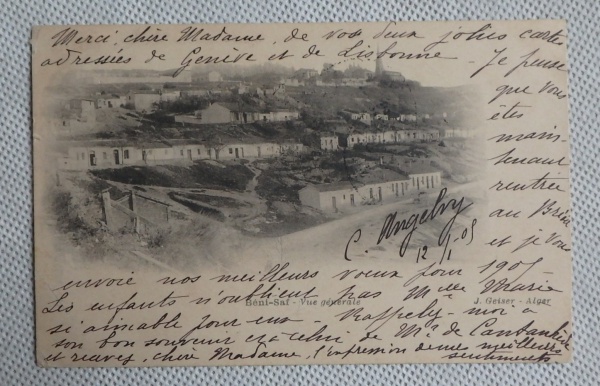 Merci, chère Madame, de vos deux jolies cartes
adressées de Genève et de Lisbonne - Je pense
que vous
êtes
main-
tenant
rentrée
au
et je vous
envoie nos meilleurs voeux pour 1905
Les enfants n'oublient pas Melle Marie
si aimable pour eux Rappelez-moi à
son bon souvenir et à celui de Me de
et recevez, chère Madame, l'expression de mes meilleurs
sentiments.
C. Angelvy
12/1-05
Béni-Saf - Vue générale
J. Geiser - Alger